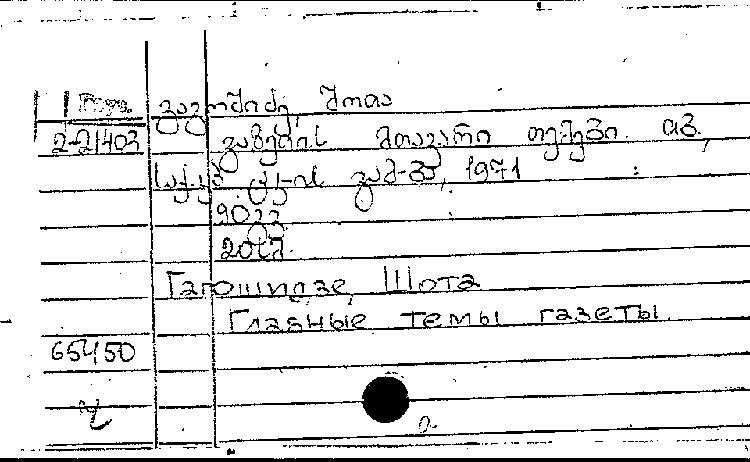 გაგოშიძე, შოთა
2-21403 გაზეთის მთავარი თემები. თბ.,
საქ. კპ ცკ-ის გამ-ბა, 1971
90 გვ
20 კ.
Гагошидзе, Шота
Главные темы газеты.
65450